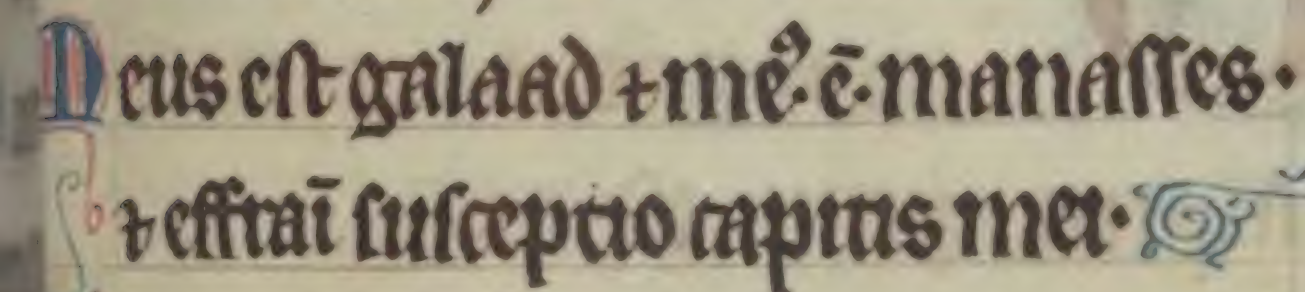 Meus est galaad ⁊ me᷒· ē· manasses·
⁊ effraī susceptio capitis mei·